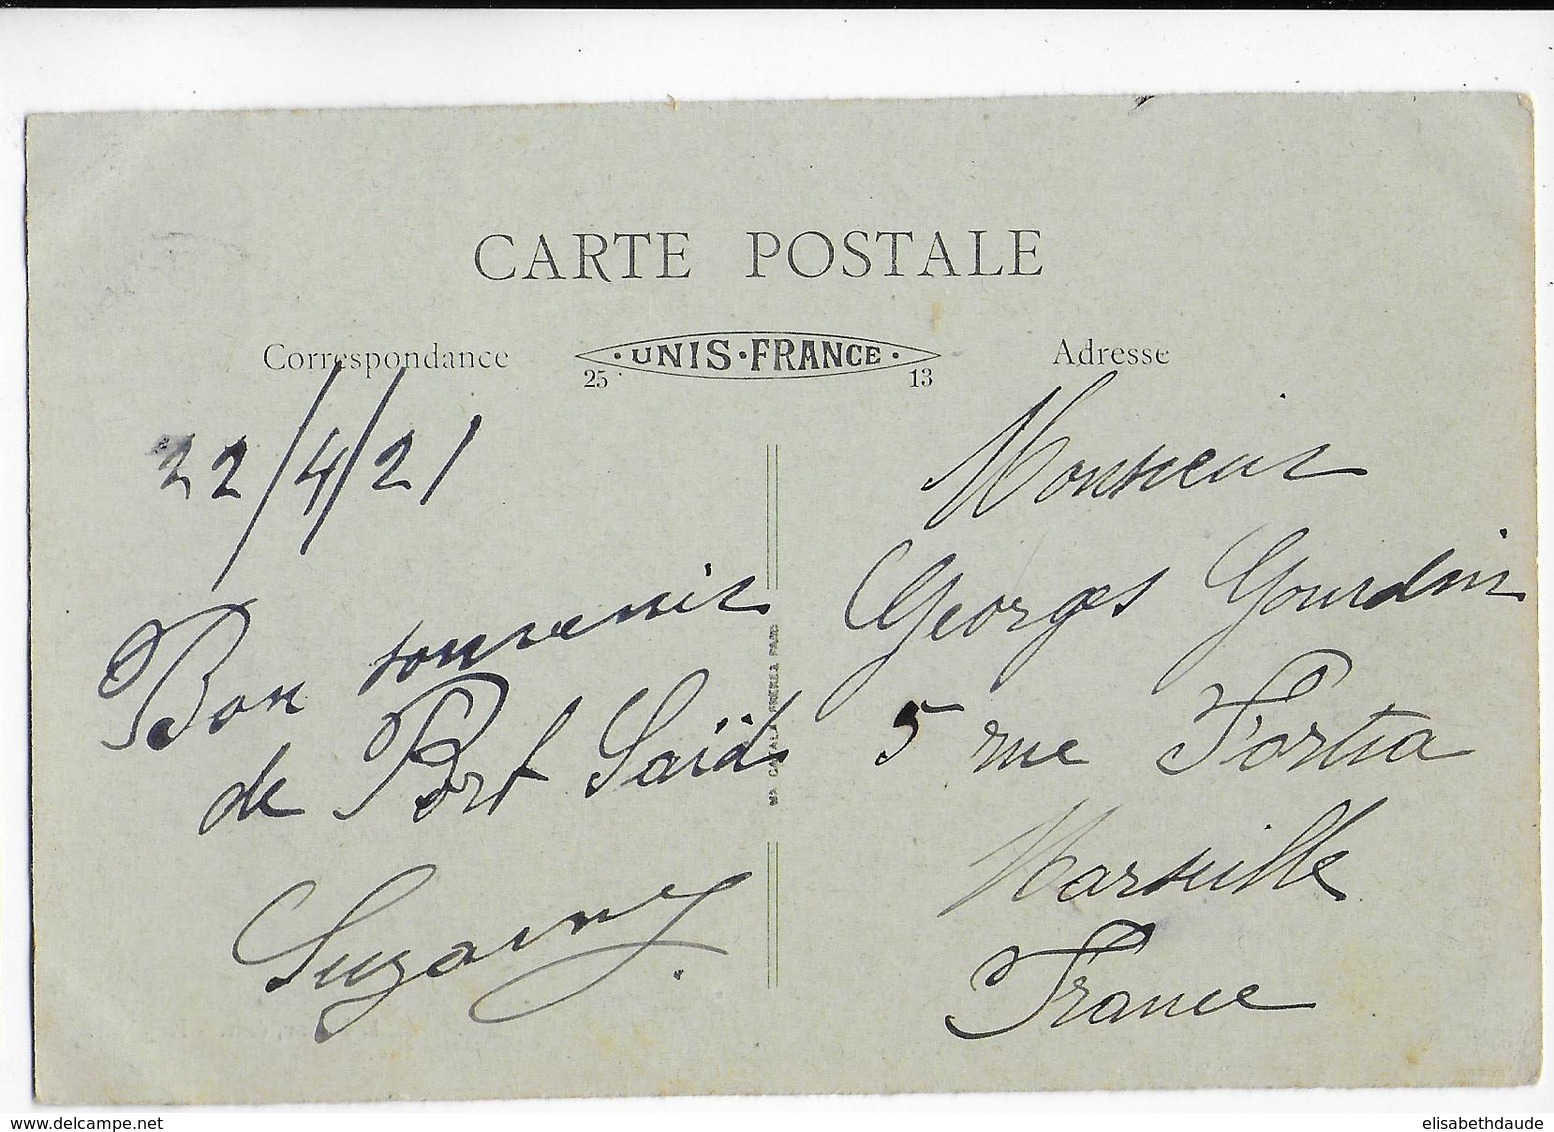 CARTE POSTALE
Correspondance
·UNIS·FRANCE·
25 13
Adresse
22/4/21
Bon souvenir
de Port Saïd
Suzanne
Monsieur
Georges Gourdin
5 rue Fortia
Marseille
France
delcampe.net
elisabethdaude